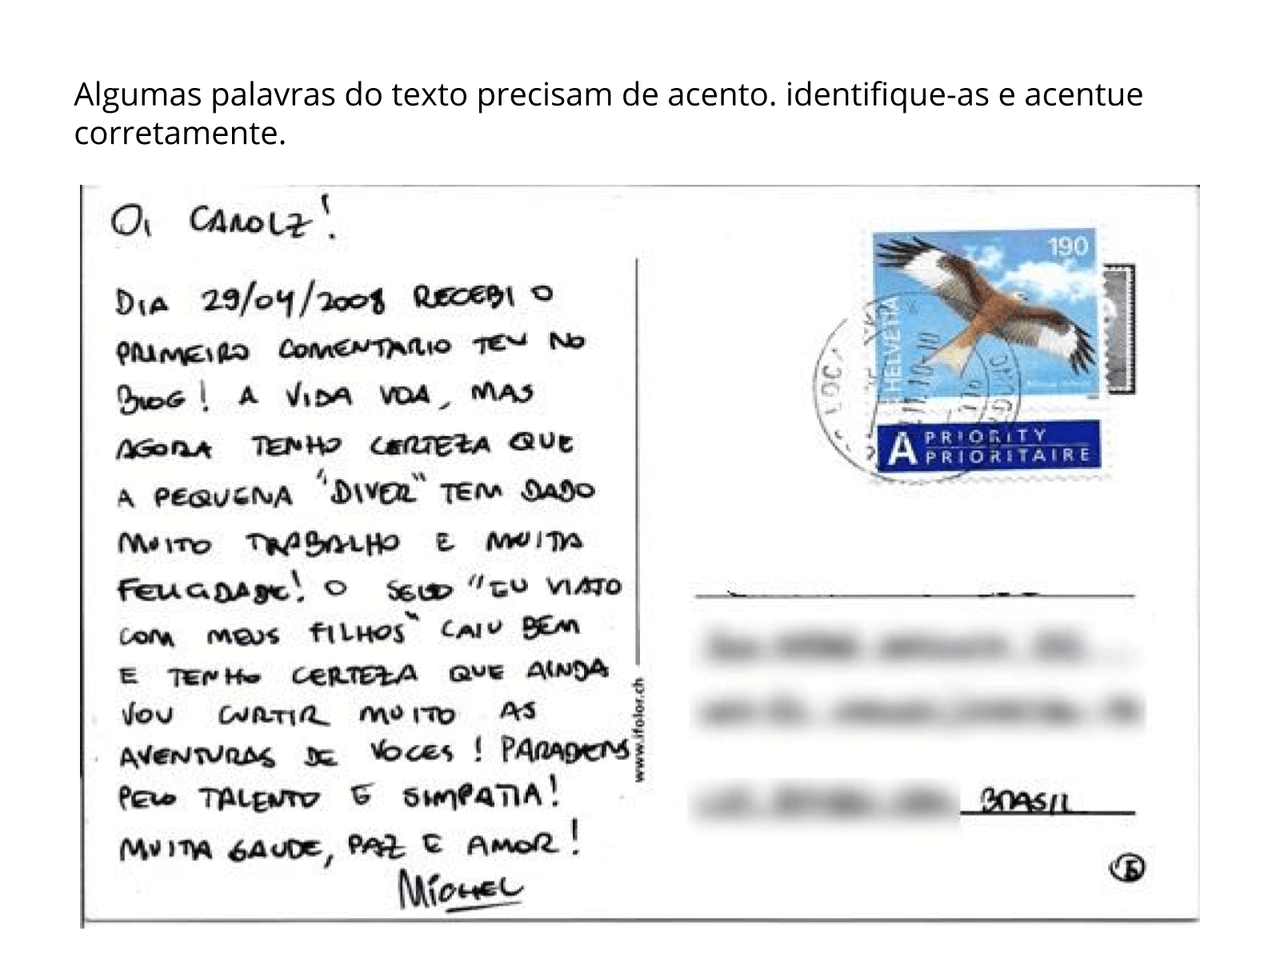 Algumas palavras do texto precisam de acento. identifique-as e acentue
corretamente.
OI CAROLZ!
DIA 29/04/2008 RECEBI O
PRIMEIRO COMENTARIO TEU NO
BLOG! A VIDA VOA, MAS
AGORA TENHO CERTEZA QUE
A PEQUENA "DIVER" TEM DADO
MUITO TRABALHO E MUITA
FELICIDADE! O SELO "EU VIAJO
COM MEUS FILHOS" CAIU BEM
E TENHO CERTEZA QUE AINDA
VOU CURTIR MUITO AS
AVENTURAS DE VOCES! PARABENS
PELO TALENTO E SIMPATIA!
MUITA SAUDE, PAZ E AMOR!
MICHEL
www.ifolor.ch
190
HELVETIA
A PRIORITY
PRIORITAIRE
BRASIL